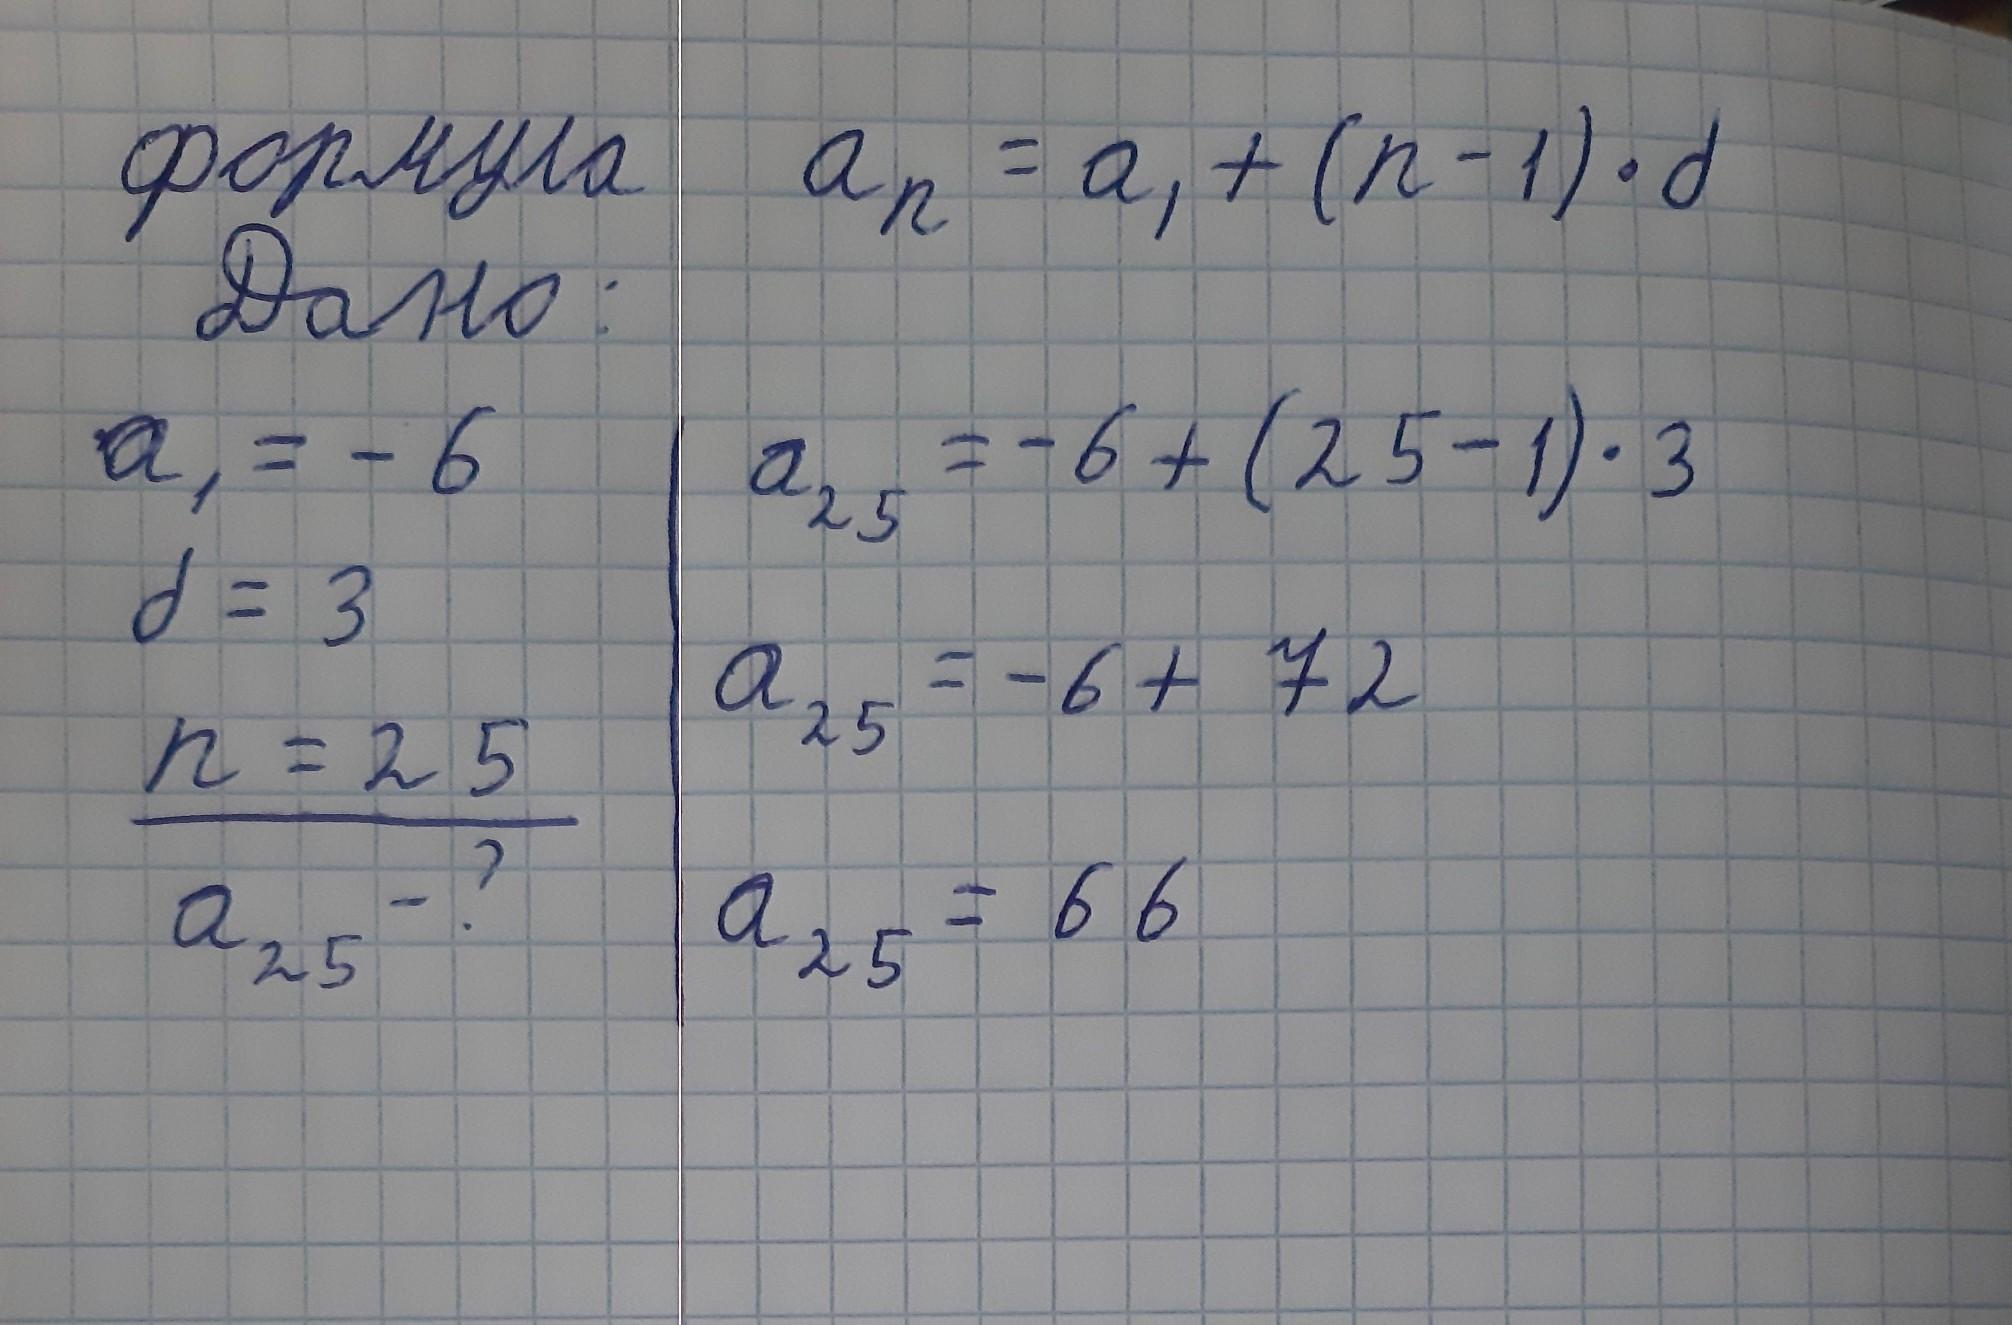 формула aₙ = a₁ + (n - 1) · d
Дано:
a₁ = - 6
d = 3
n = 25
a₂₅ - ?
a₂₅ = - 6 + (25 - 1) · 3
a₂₅ = - 6 + 72
a₂₅ = 66